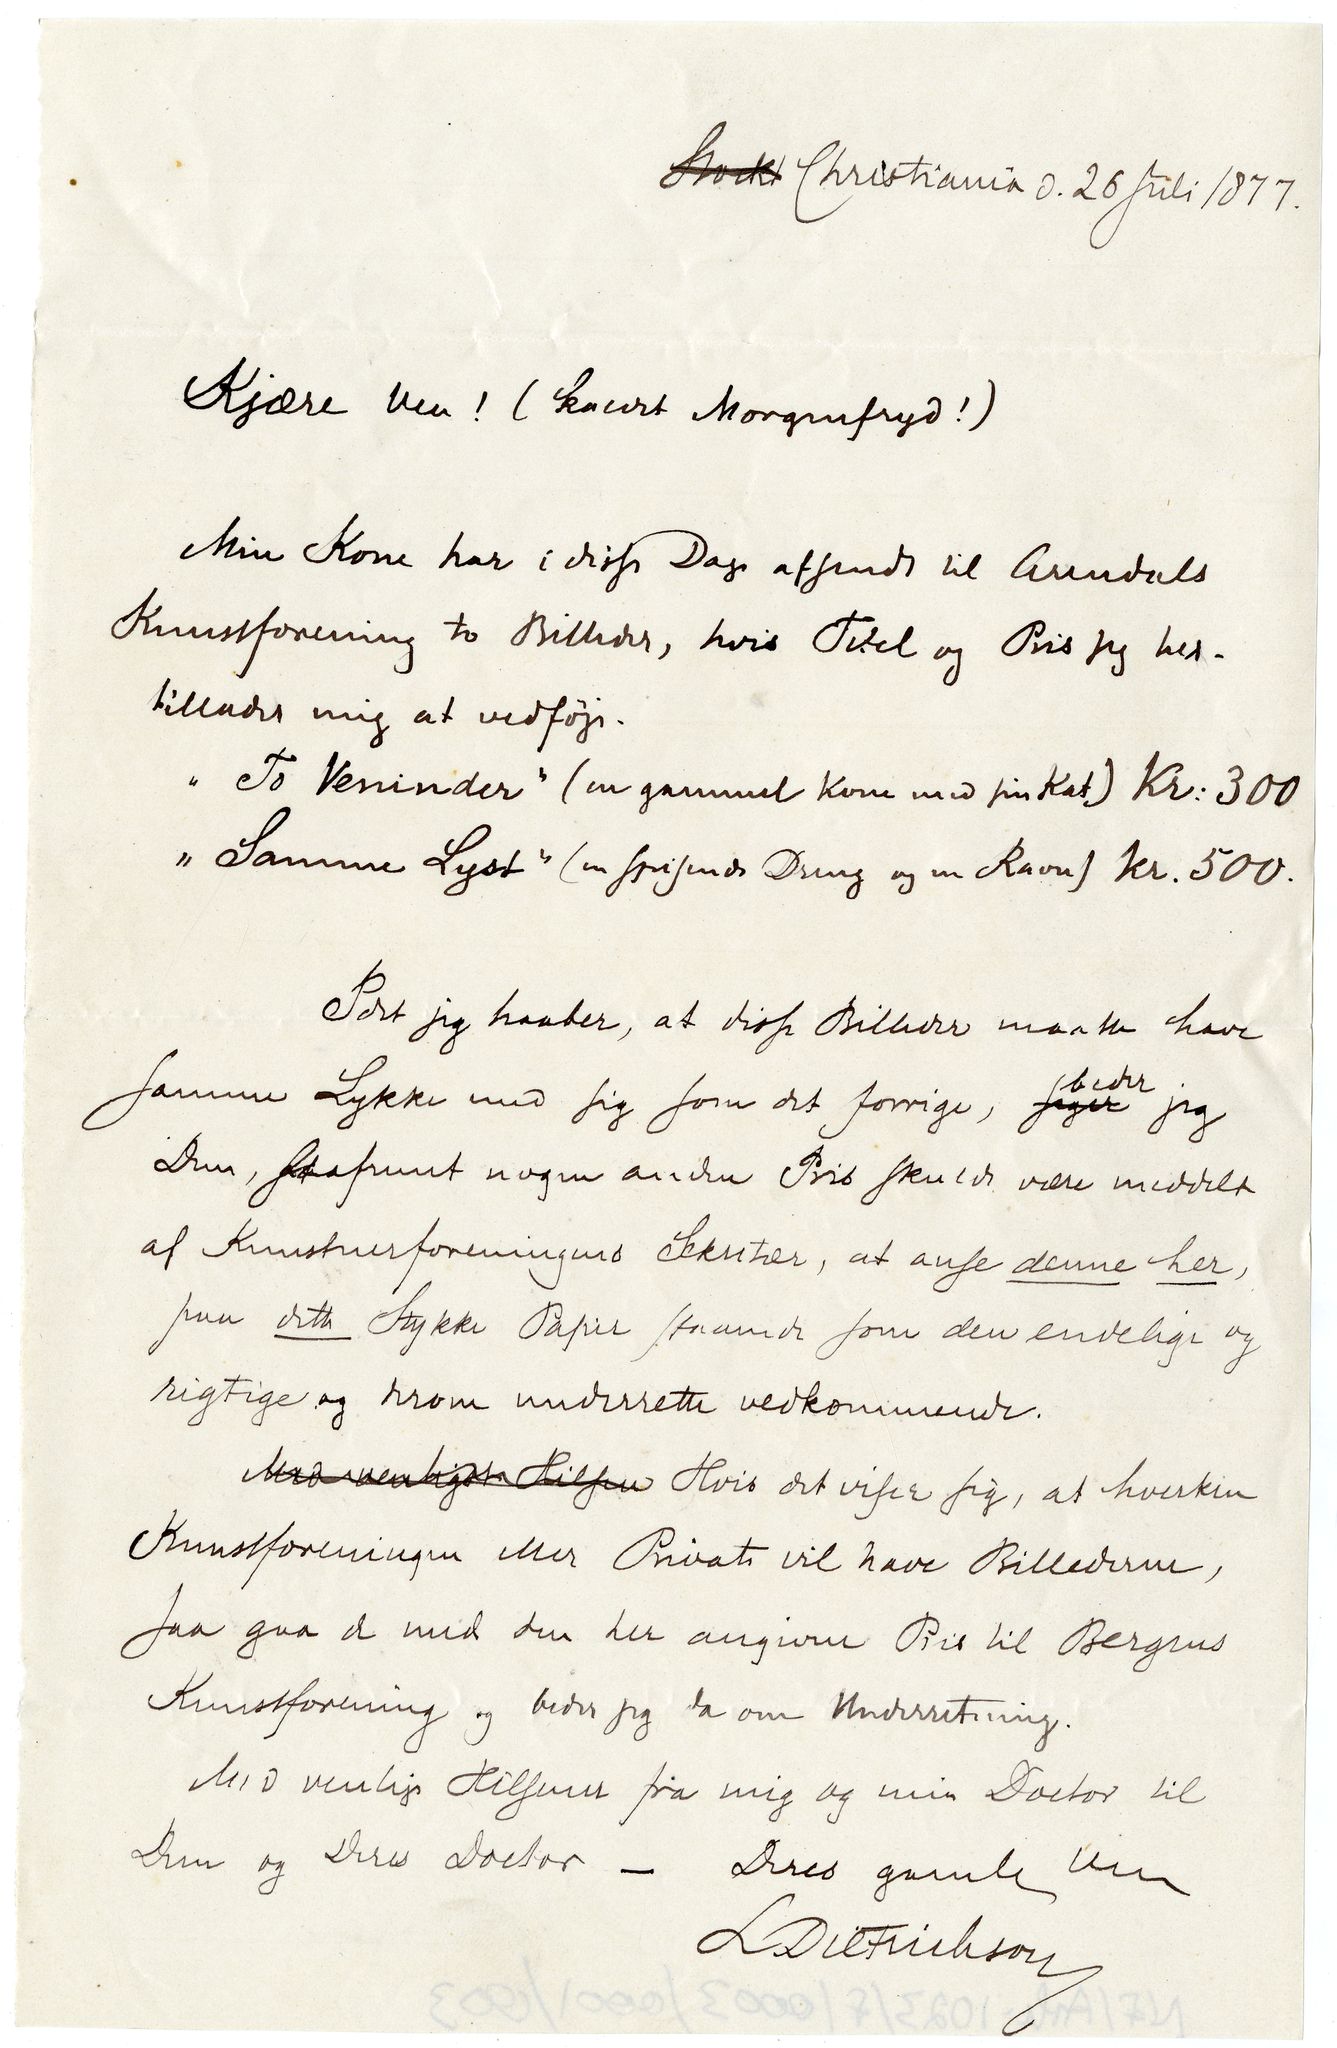 Stockt Christiania d. 26 Juli 1877.
Kjære Ven! ( Morgenfryd!)
Min Kone har i disse Dage afsendt til Arendals
Kunstforening to Billeder, hvis Titel og Pris jeg her-
tillader mig at vedføje.
" To Veninder" (en gammel Kone med sin Kat) Kr: 300
" Samme Lyst" (en spisende Dreng og en Ravn) Kr. 500.
Idet jeg haaber, at disse Billeder maatte have
samme Lykke med sig som det forrige, beder jeg
Dem, saafremt nogen anden Pris skulde være meddelt
af Kunstnerforeningens Sekretær, at anse denne her,
paa dette Stykke Papir staaende som den endelige og
rigtige og herom underrette vedkommende.
Med venligste Hilsen Hvis det viser sig, at hverken
Kunstforeningen eller Private vil have Billederne,
saa gaa de med den her angivne Pris til Bergens
Kunstforening og beder jeg da om Underretning.
Med venlige Hilsener fra mig og min Doctor til
Dem og Deres Doctor — Deres gamle Ven
L Dietrichson